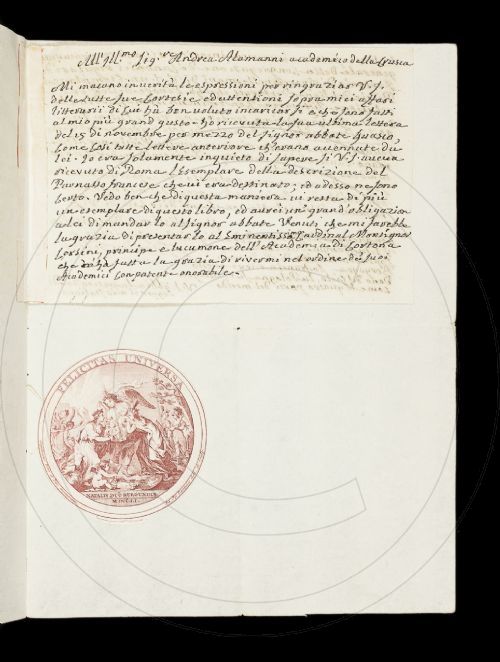 All'Ill.mo Sig.re Andrea Alamanni academico della Crusca
Mi macano in verità le espressioni per ringraziar V. S.
delle tutte sue cortesie ed attentioni sopra miei affari
litterarii di cui hà ben voluto incaricarsi e che sono fatti
al mio più grand gusto. hò ricevuta la sua ultima lettera
del 15 di novembre per mezzo del signor abbate Guasco,
come così tutte lettere anteriore ch'erano avennate da
lei. Io era solamente inquieto di sapere si V. S. aveva
ricevuto di Roma l'Esemplare della descrizione del
Parnasso francese che vi era destinato; ed adesso ne sono
certo. Vedo ben che di questa maniera vi resta di più
un esemplare di questo libro, ed aurei un grand' obligazion
a lei di mandarlo al signor abbate Venuti che mi farebbe
la grazia di presentarlo al Eminentissº Cardinal Monsignor
Corsini, principe e lucumone dell'Academia di Cortona
che m'hà fatta la grazia di rivermi nel ordine dei suoi
Academici con patente onorabile.
FELICITAS UNIVERSA
NATALIS DUC BURGUNDIÆ
MDCCLI.